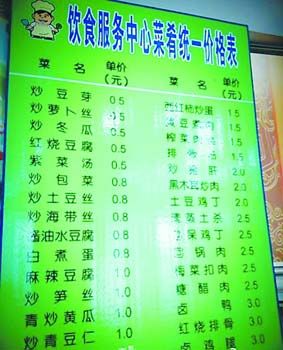 饮食服务中心菜肴统一价格表
菜 名 单价(元) 菜 名 单价(元)
炒豆芽 0.5 西红柿炒蛋 1.5
炒萝卜丝 0.5 1.5
炒冬瓜 0.5 榨菜肉 1.5
红烧豆腐 0.5 排 1.5
紫菜汤 0.5 炒 肝 2.0
炒包菜 0.8 黑木耳炒肉 2.0
炒土豆丝 0.8 土豆鸡丁 2.0
炒海带丝 0.8 清蒸土杀 2.5
酱油水豆腐 0.8 保鸡丁 2.5
白煮蛋 0.8 回锅肉 2.5
麻辣豆腐 1.0 梅菜扣肉 2.5
炒笋丝 1.0 糖醋肉 2.5
青炒黄瓜 1.0 卤鸭 3.0
炒青豆仁 1.0 红烧排骨 3.0
卤鸡腿 3.0